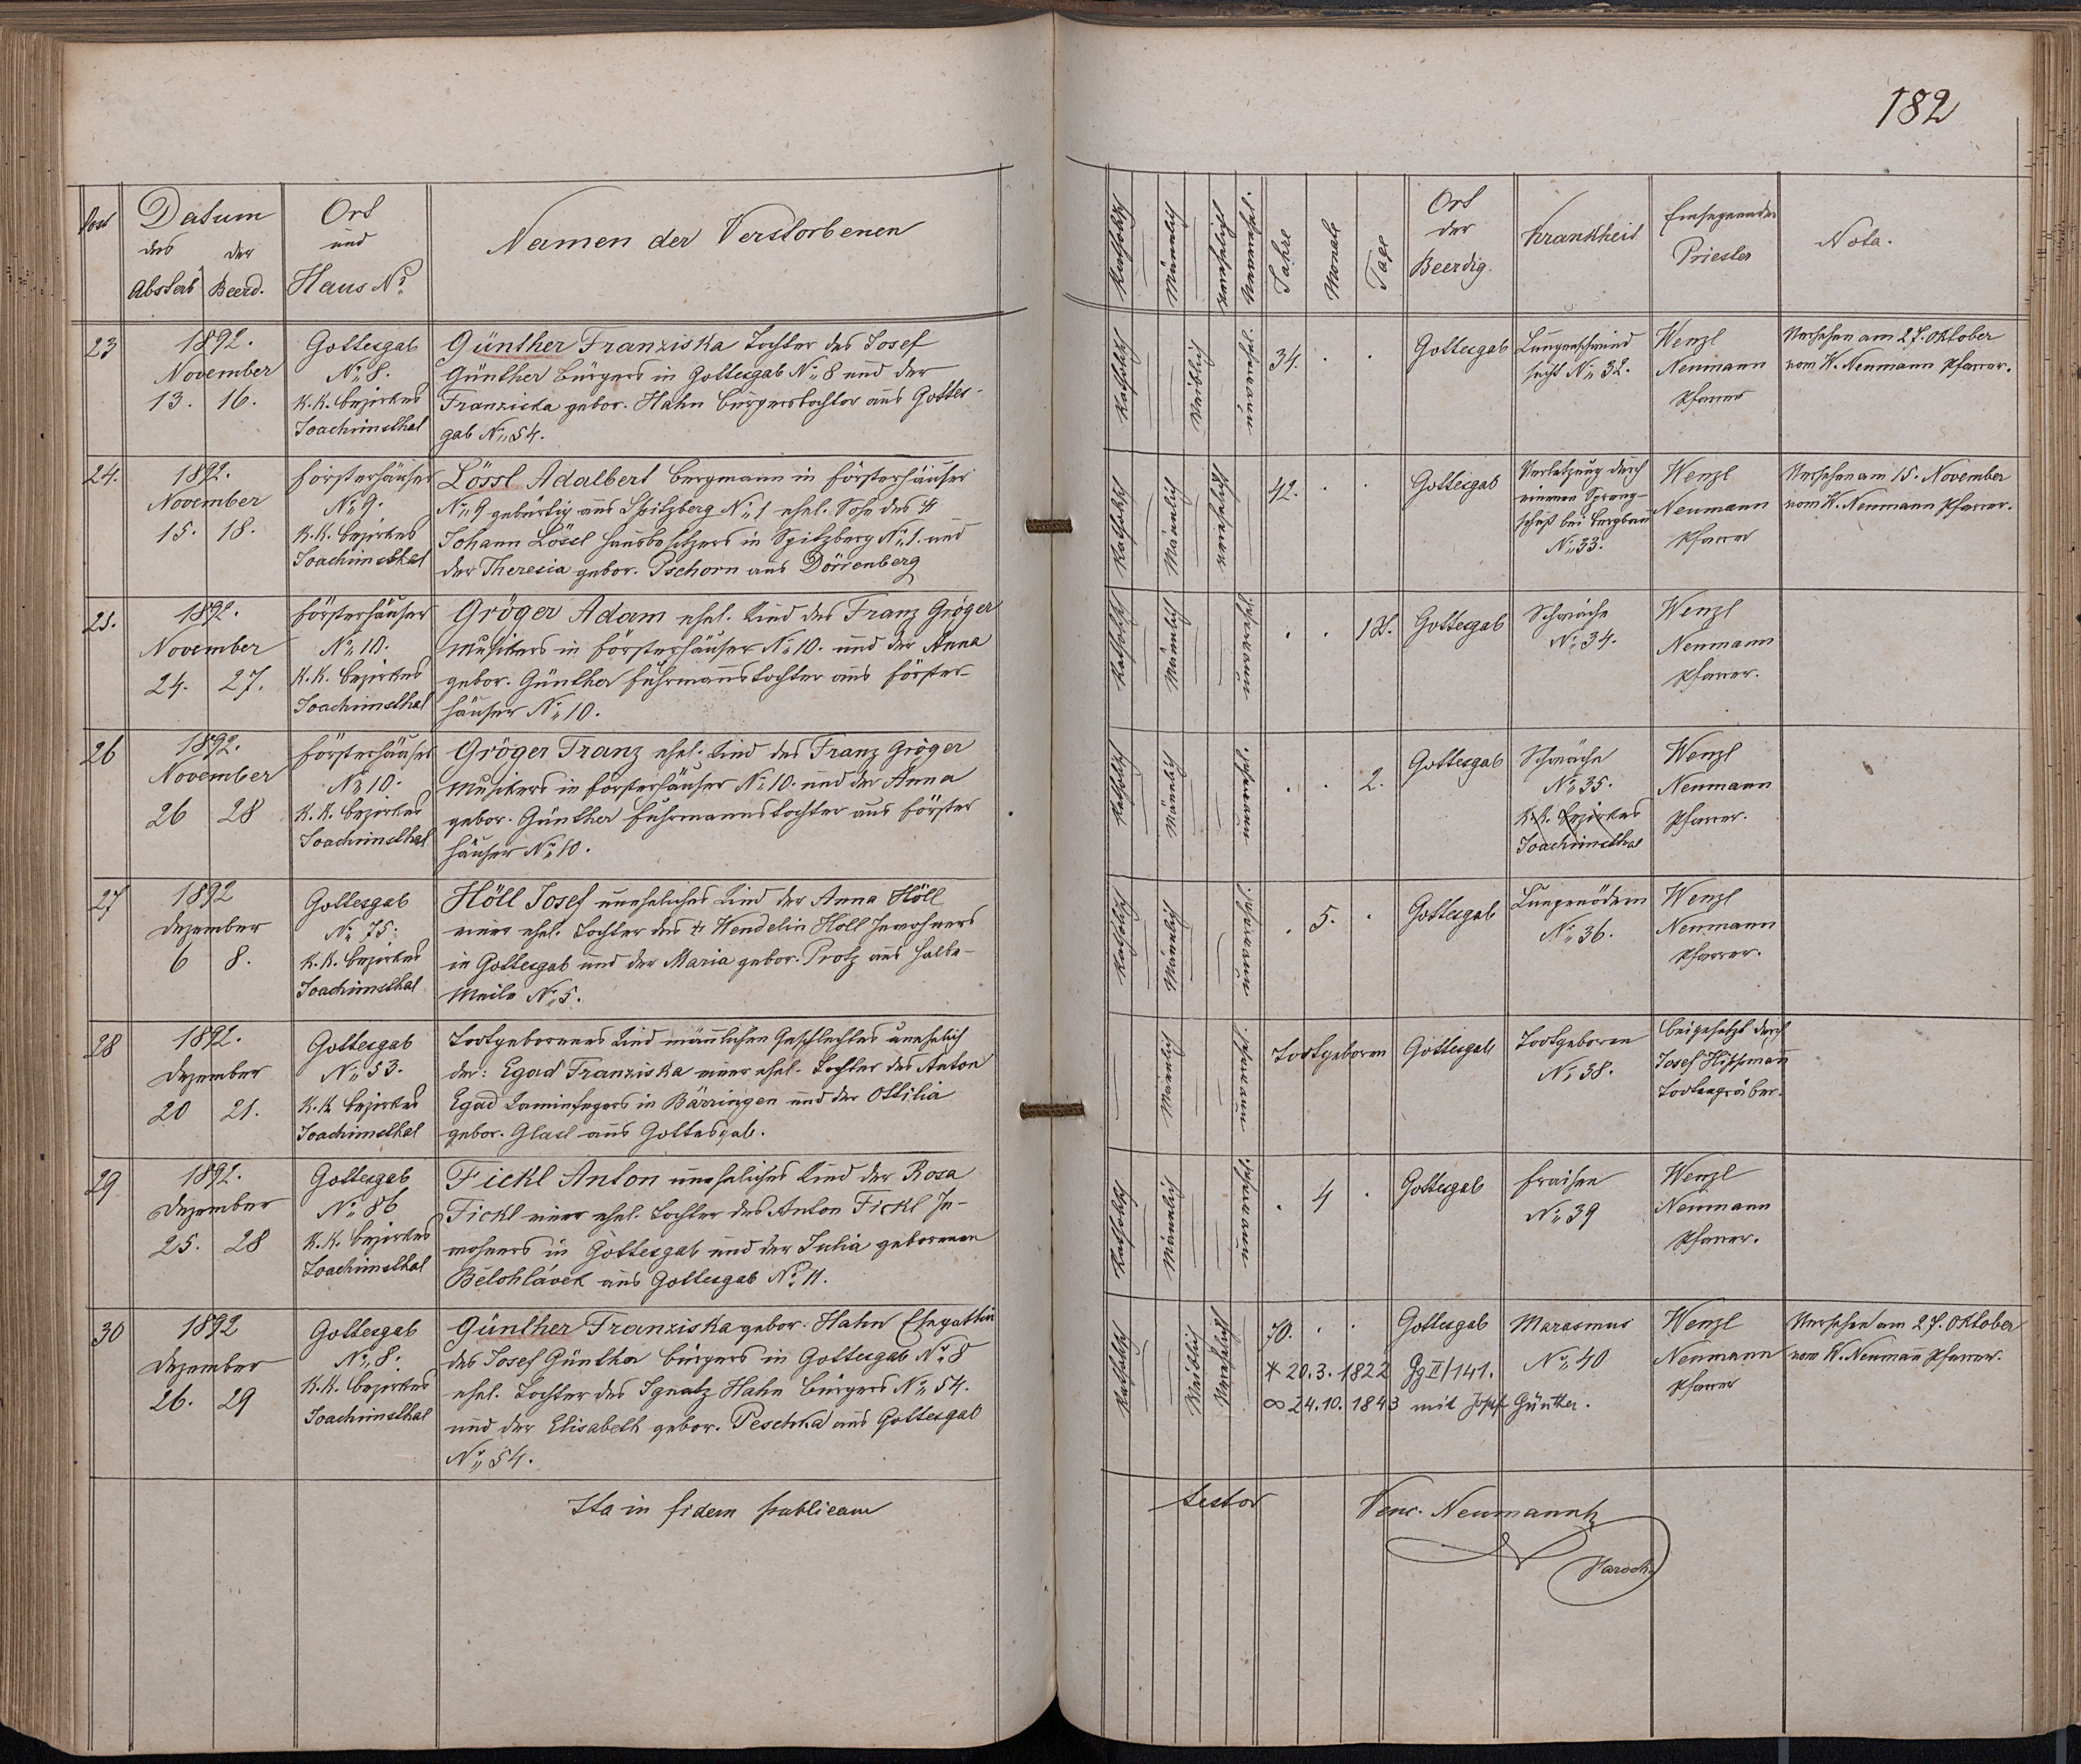 182
Post Datum des Absterb. der Beerd. Ort und Haus No. Namen der Verstorbenen
Katholisch Männlich Verehelicht Unverehel. Jahre Monate Tage Ort der Beerdig. Krankheit Einsegnender Priester Nota.
23 1892. Gottesgab Günther Franziska Tochter des Josef
November No. 8. Günther Bürgers in Gottesgab No. 8 und der
13. 16. K.K. Bezirkes Franziska gebor. Hahn Bürgerstochter aus Gottes-
Joachimsthal gab No. 54.
Katholisch Weiblich unverehel. 34. Gottesgab Lungenschwind Wenzl Versehen am 27. Oktober
sucht No. 32. Neumann vom W. Neumann Pfarrer.
Pfarrer
24. 1892. Försterhäuser Lössl Adalbert Bergmann in Försterhäuser
November No. 9. No. 9 gebürtig aus Spitzberg No. 1 ehel. Sohn des †
15. 18. K.K. Bezirkes Johann Lössl Hausbesitzers in Spitzberg No. 1. und
Joachimsthal der Theresia gebor. Tschorn aus Dörrenberg
Katholisch Männlich verehelicht 42. Gottesgab Verletzung durch Wenzl Versehen am 15. November
einen Spreng- Neumann vom W. Neumann Pfarrer.
schuß bei Bergbau Pfarrer
No. 33.
25. 1892. Försterhäuser Gröger Adam ehel. Kind des Franz Gröger
November No. 10. Musikers in Försterhäuser No. 10. und der Anna
24. 27. K.K. Bezirkes gebor. Günther Fuhrmannstochter aus Förster-
Joachimsthal häuser No. 10.
Katholisch Männlich unverehel. Gottesgab Schwäche Wenzl
No. 34. Neumann
Pfarrer.
26 1892. Försterhäuser Gröger Franz ehel. Kind des Franz Gröger
November No. 10. Musikers in Försterhäuser No. 10. und der Anna
26 28 K.K. Bezirkes gebor. Günther Fuhrmannstochter aus Förster
Joachimsthal häuser No. 10.
Katholisch Männlich unverehel. 2. Gottesgab Schwäche Wenzl
No. 35. Neumann
K.K. Bezirkes Pfarrer.
Joachimsthal
27 1892 Gottesgab Höll Josef uneheliches Kind der Anna Höll
Dezember No. 75. einer ehel. Tochter des † Wendelin Höll Inwohners
6 8. K.K. Bezirkes in Gottesgab und der Maria gebor. Protz aus Halbe-
Joachimsthal Meile No. 5.
Katholisch Männlich unverehel. 5. Gottesgab Lungenödem Wenzl
No. 36. Neumann
Pfarrer.
28 1892. Gottesgab Todtgeborenes Kind männlichen Geschlechtes unehelich
Dezember No. 53. der: Egad Franziska einer ehel. Tochter des Anton
20 21. K.K. Bezirkes Egad Kaminfegers in Bärringen und der Ottilia
Joachimsthal gebor. Glasl aus Gottesgab.
Männlich unverehel. Todtgeboren Gottesgab Todtgeboren beigesetzt durch
No. 38. Josef Hippmann
Todtengräber.
29 1892. Gottesgab Fickl Anton uneheliches Kind der Rosa
Dezember No. 86 Fickl einer ehel. Tochter des Anton Fickl In-
25. 28 K.K. Bezirkes wohners in Gottesgab und der Julia geborenen
Joachimsthal Bělohlávek aus Gottesgab No. 11.
Katholisch Männlich unverehel. 4 Gottesgab Fraisen Wenzl
No. 39 Neumann
Pfarrer.
30 1892 Gottesgab Günther Franziska gebor. Hahn Ehegattin
Dezember No. 8. des Josef Günther Bürgers in Gottesgab No. 8
26. 29 K.K. Bezirkes ehel. Tochter des Ignatz Hahn Bürgers No. 54.
Joachimsthal und der Elisabeth gebor. Peschka aus Gottesgab
No. 54.
Katholisch Weiblich Verehelicht 70. Gottesgab Marasmus Wenzl Versehen am 27. Oktober
* 20.3.1822 Gg II/141. No. 40 Neumann vom W. Neumann Pfarrer.
∞ 24.10.1843 mit Josef Günther. Pfarrer
Ita in fidem publicam testor Venc. Neumann
Paroch.